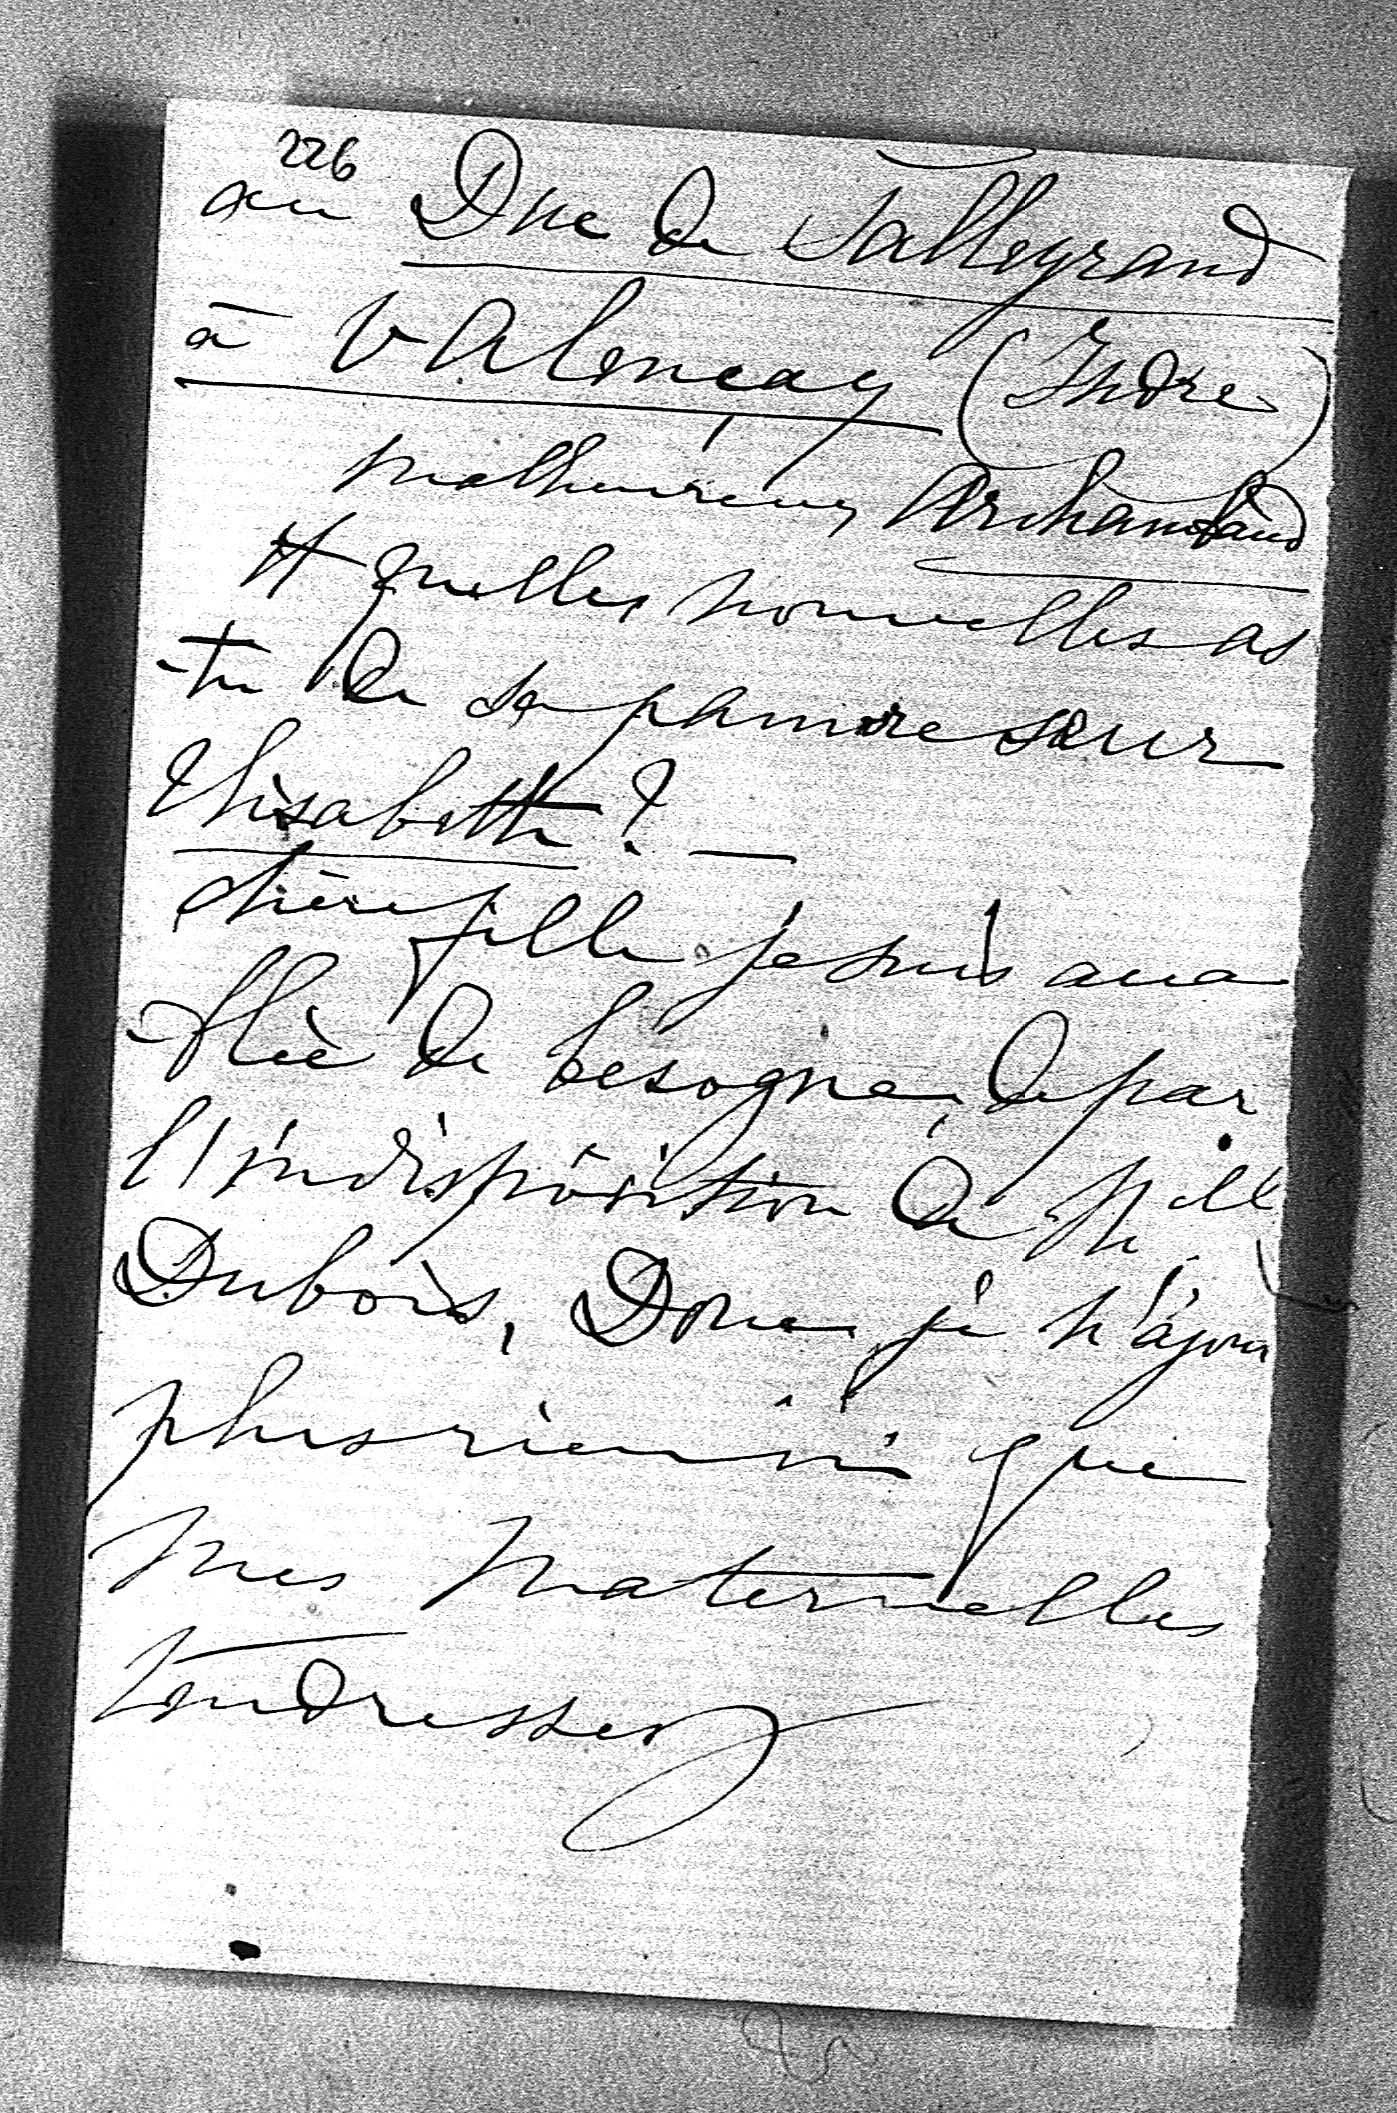 226
au Duc de Talleyrand
à Valençay (Indre)
malheureux Archambaud
# quelles nouvelles as
-tu de sa pauvre sœur
Elisabeth ? —
chère fille je suis acca
-blée de besogne, de par
l'indisposition de Mlle
Dubois, Donc je n'ajoute
plus rien ici que
mes maternelles
tendresses